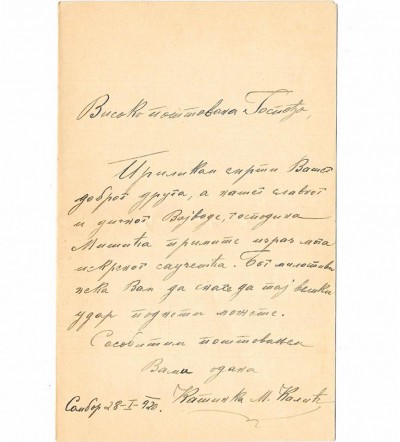 Високопоштована Госпођо,
Приликом смрти Вашег
доброг друга, а нашег славног
и дичног Војводе, господина
Мишића примите израз мога
искреног саучешћа. Бог милостиви
нека Вам да снаге да тај велики
удар поднети можете.
Сособитим поштовањем
Вама одана
Сомбор 28-I-920. Катинка М. Калић